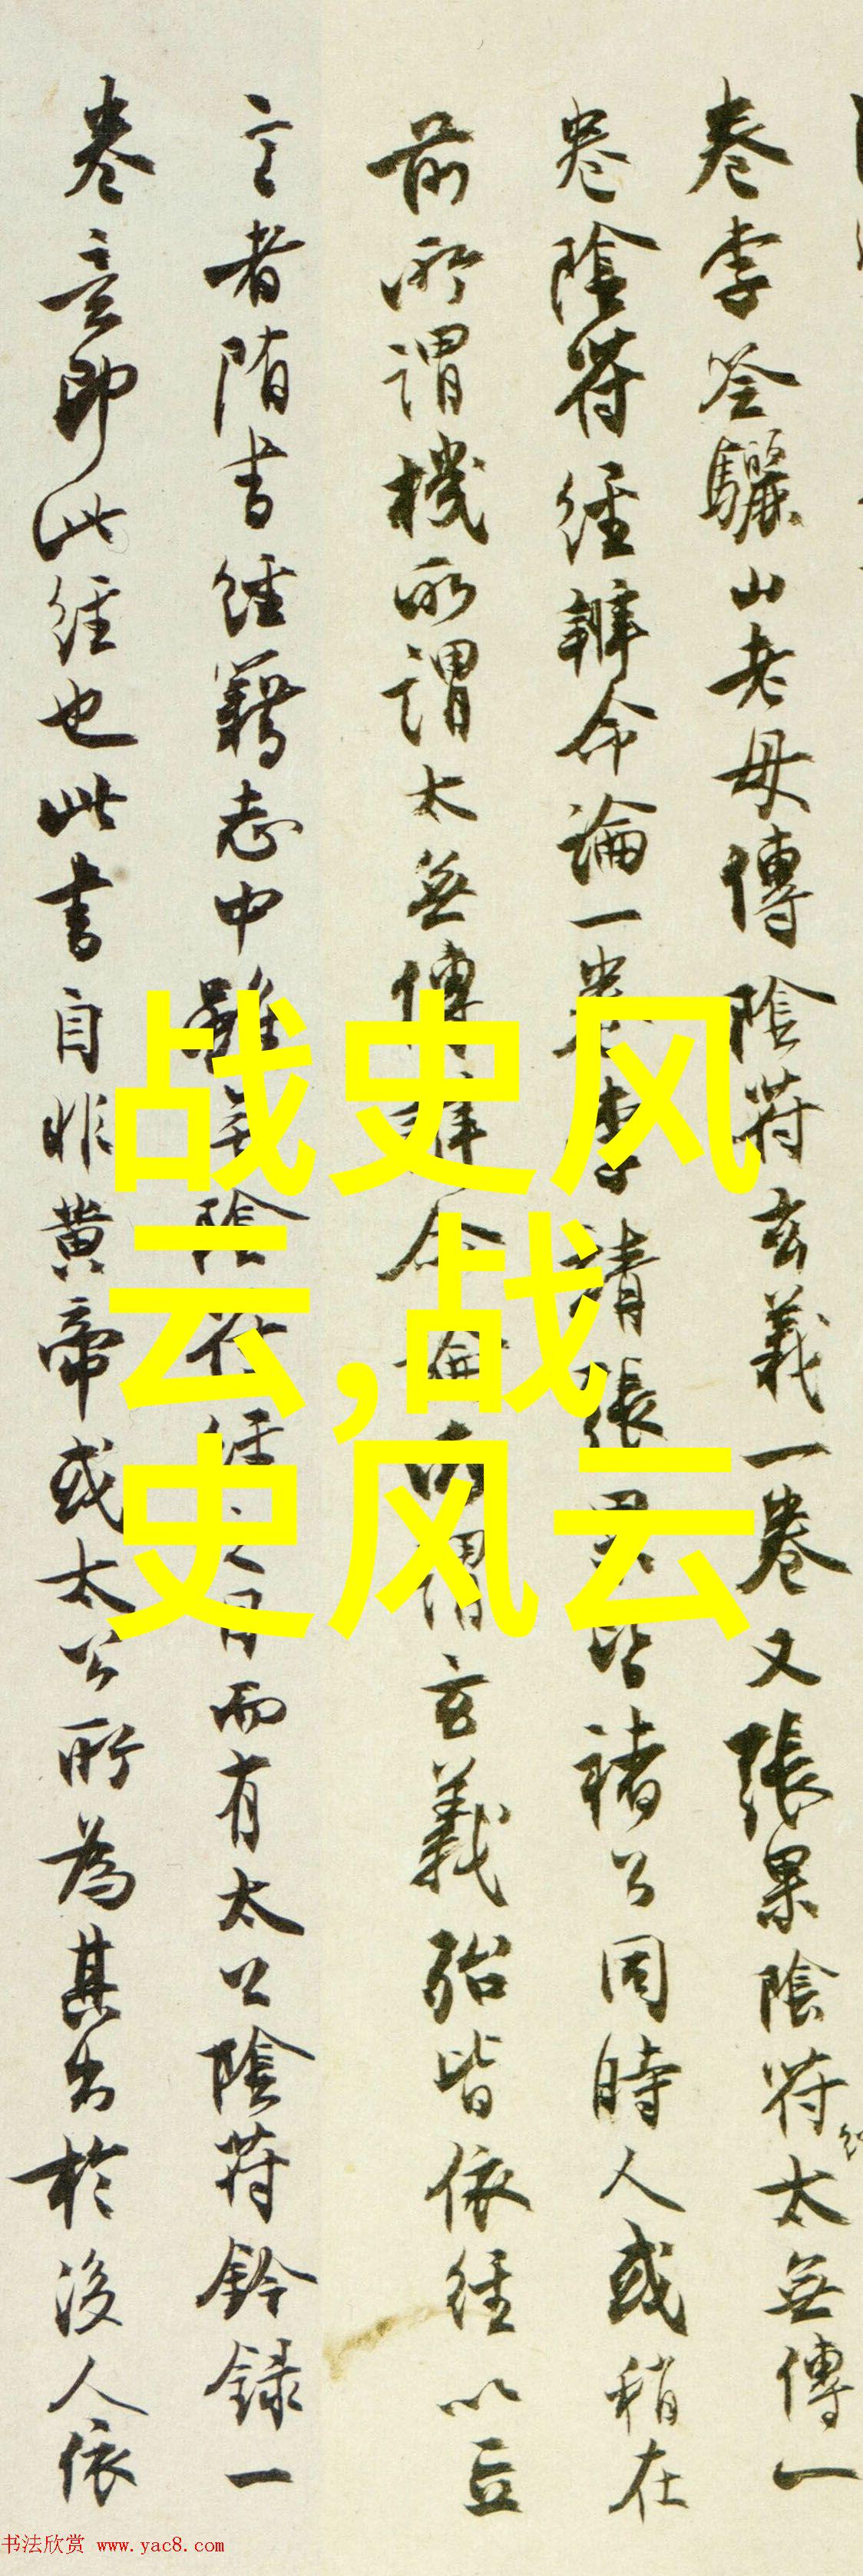 卷李筌驪山老母傳陰符玄義一卷又張果陰符太無傳一
卷陰符經辯命論一卷李靖張果皆褚公同時人或稍在
前所謂機所謂太無傳辯命論所謂玄義殆皆依經以立
言者隋書經籍志中雖無陰符經之目而有太公陰符鈐録一
卷意即此經也此書自非黄帝或太公所為其出於後人依
战史风
云,战
史风云
书法欣赏 www.yac8.com